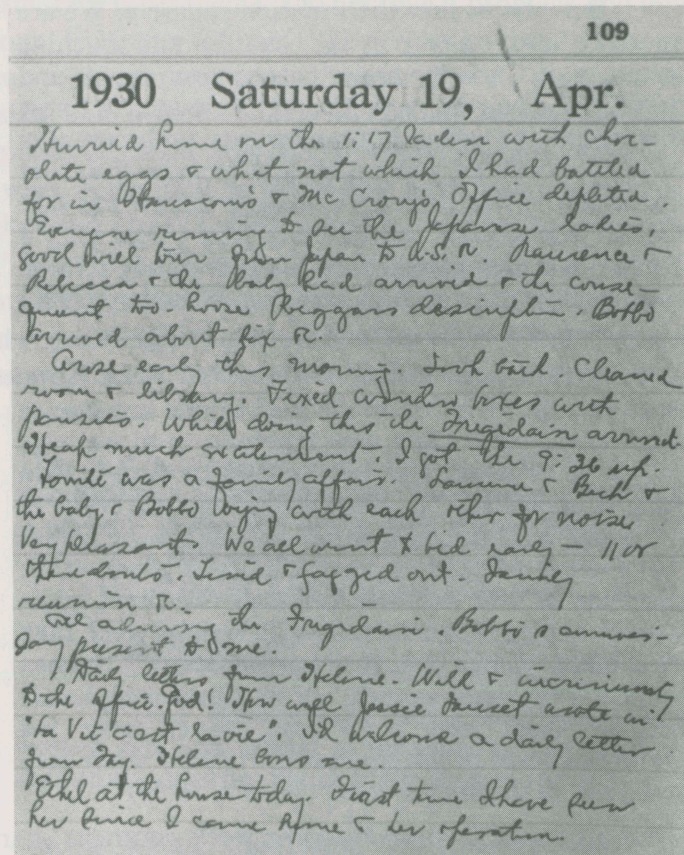 109
1930 Saturday 19, Apr.
Hurried home on the 1:17 laden with choc-
olate eggs & what not which I had battled
for in Hanscom's & McCrory's. Office depleted.
Everyone running to see the Japanese ladies,
good will tour from Japan to U.S. Laurence &
Rebecca & the baby had arrived & the conse-
quent too. house beggars description. Bobbo
arrived about six
Arose early this morning. Took bath. Cleaned
room & library. Fixed window boxes with
pansies. While doing this the Frigidaire arrived.
Heap much excitement. I got the 9:36 up.
Tonite was a family affair. Laurence & Beck &
the baby & Bobbo vying with each other for noise
Very pleasant. We all went to bed early — 11 or
thereabouts. Tired & fagged out. Family
reunion
All admiring the Frigidaire. Bobbo's anniver-
sary present to me.
Daily letters from Helene. Wild & incriminating
to the office. God! How well Jessie Fauset wrote in
"La Vie c'est la vie". I'd welcome a daily letter
from Fay. Helene bores me.
Ethel at the house today. First time I have seen
her since I came home & her operation.